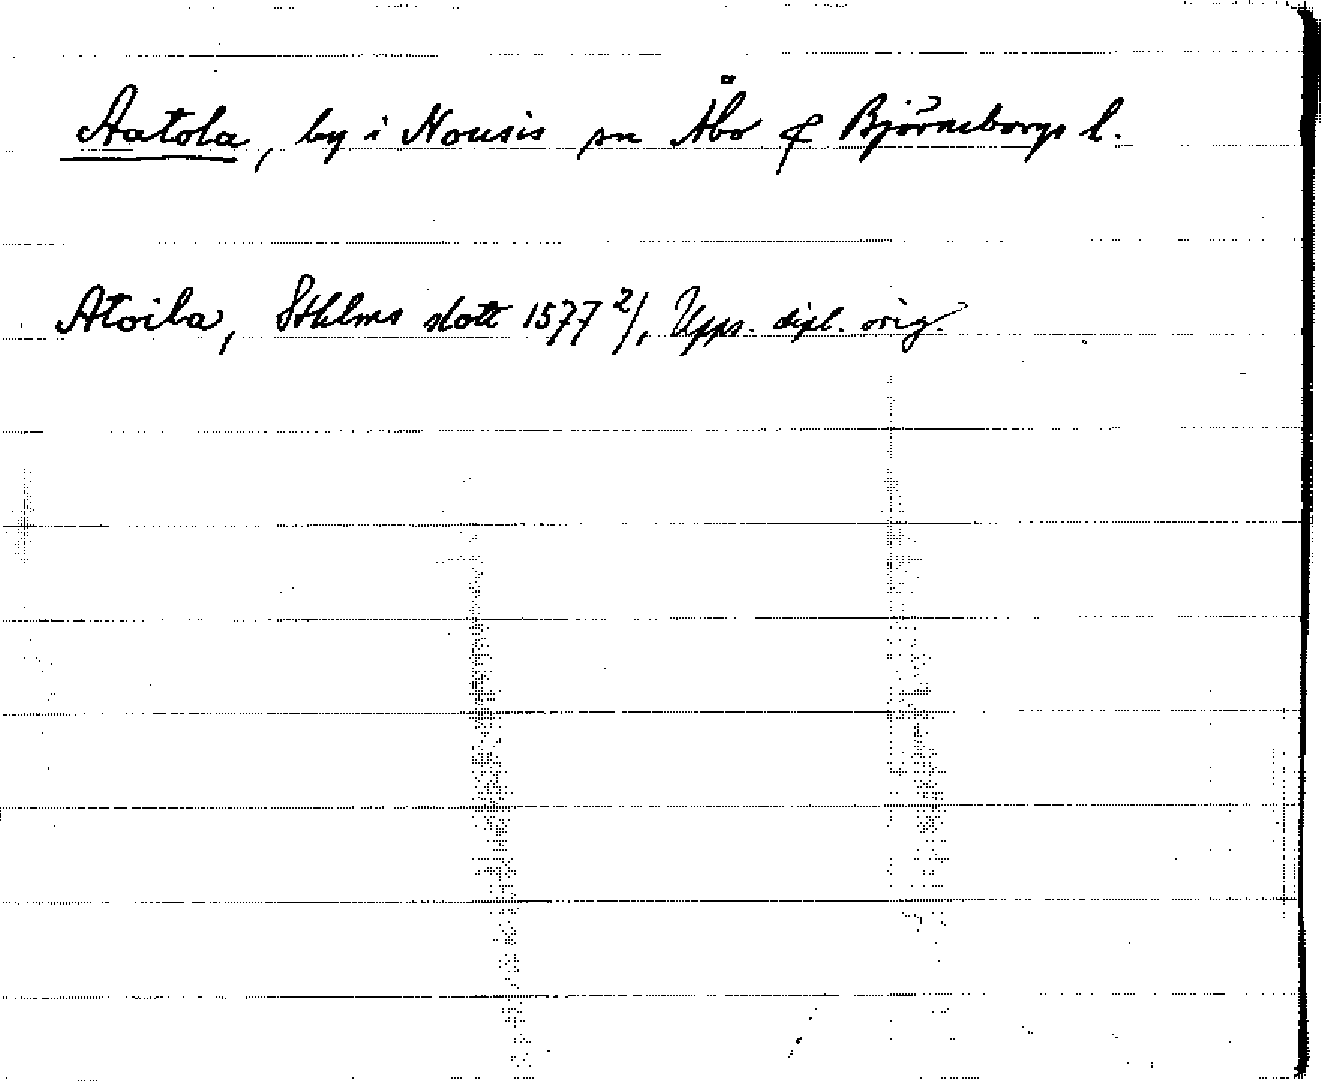 Aatola, by i Nousis sn Åbo & Björneborgs l.
Atoila, Sthlms slott 1577 2/, Upps. dipl. orig.